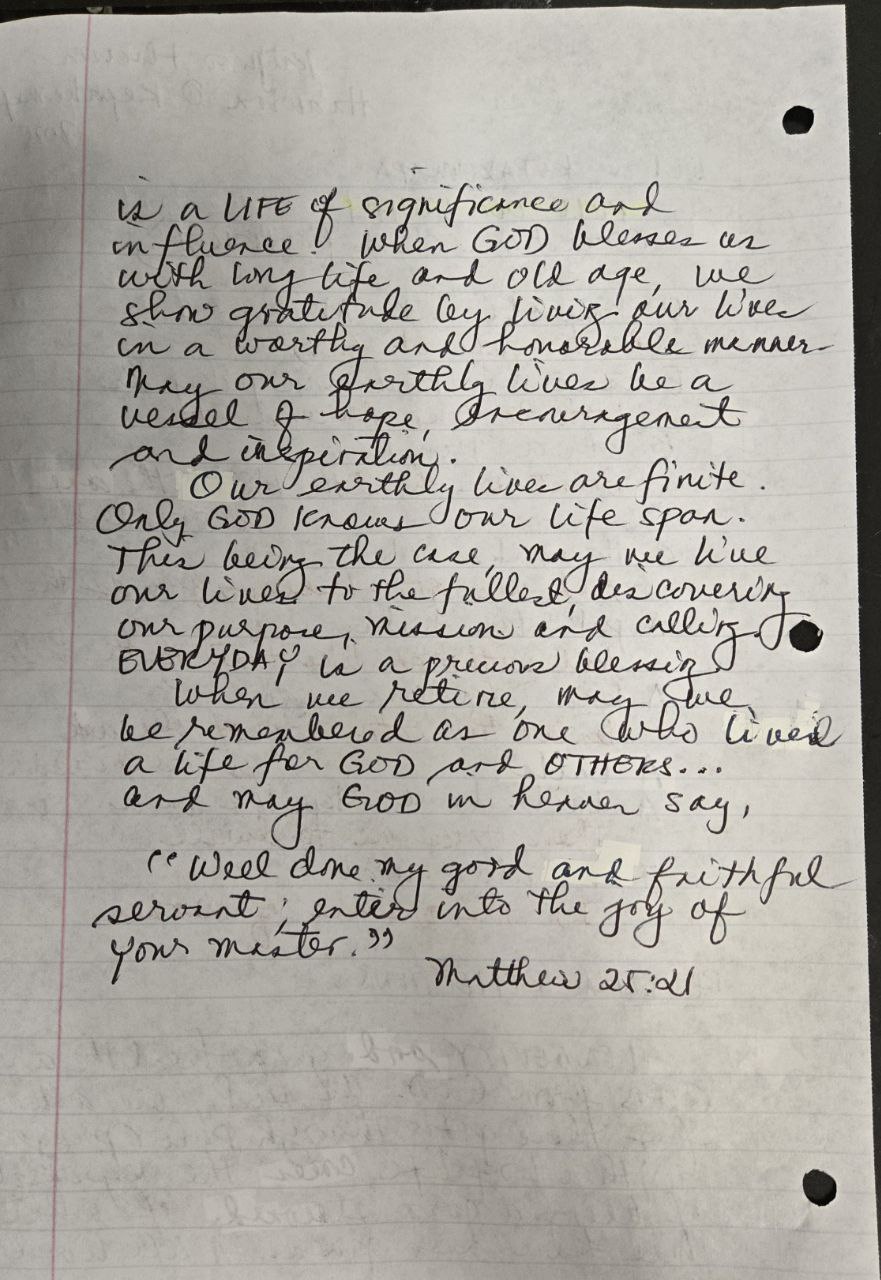 is a LIFE of significance and
influence! When GOD blesses us
with long life and old age, we
show gratitude by living our lives
in a worthy and honorable manner.
May our earthly lives be a
vessel of hope, encouragement
and inspiration.
Our earthly lives are finite.
Only GOD knows our life span.
This being the case, may we live
our lives to the fullest, discovering
our purpose, mission and calling.
EVERYDAY is a precious blessing
When we retire, may we
be remembered as one who lived
a life for GOD and OTHERS...
and may GOD in heaven say,
"Well done my good and faithful
servant; enter into the joy of
your master."
Matthew 25:21